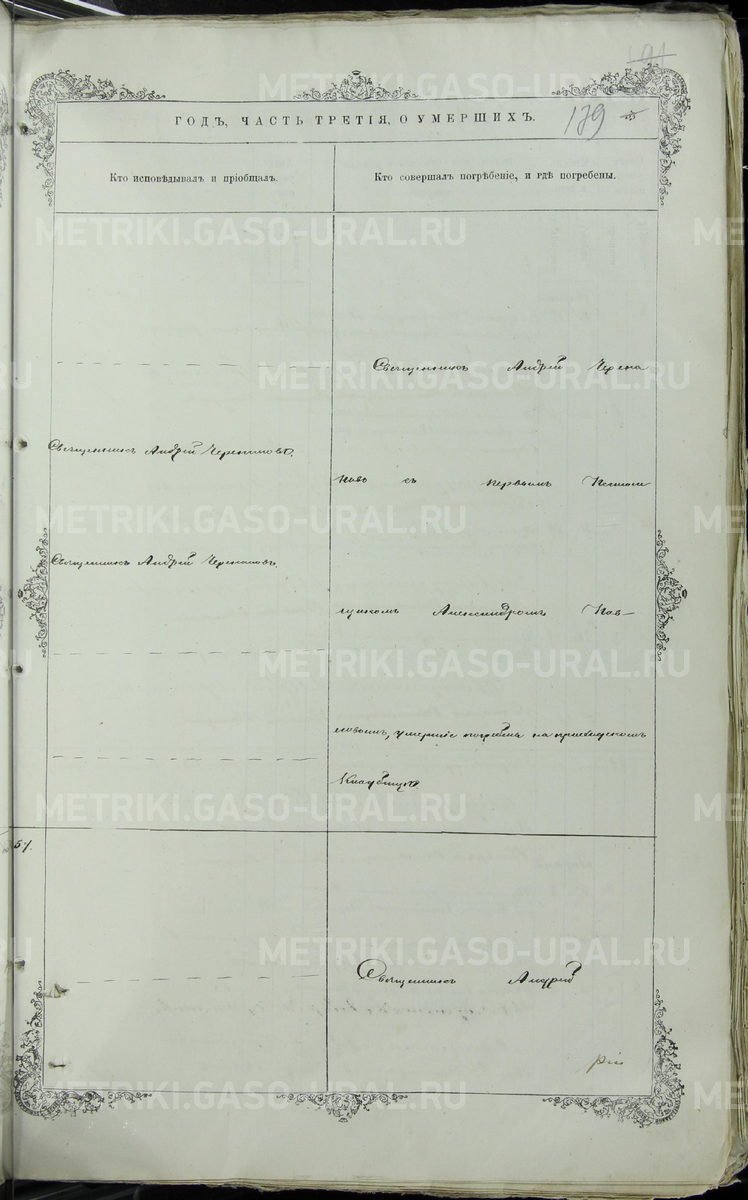 191
179
ГОДЪ, ЧАСТЬ ТРЕТІЯ, О УМЕРШИХЪ.
Кто исповѣдывалъ и пріобщалъ.
Кто совершалъ погрѣбеніе, и гдѣ погребены.
Священникъ Андрей
Священникъ Андрей
Священникъ Андрей
съ первымъ
Александромъ Пав-
ловымъ, умершіе погребены на приходскомъ
Кладбищѣ.
57.
Священникъ Андрей
METRIKI.GASO-URAL.RU